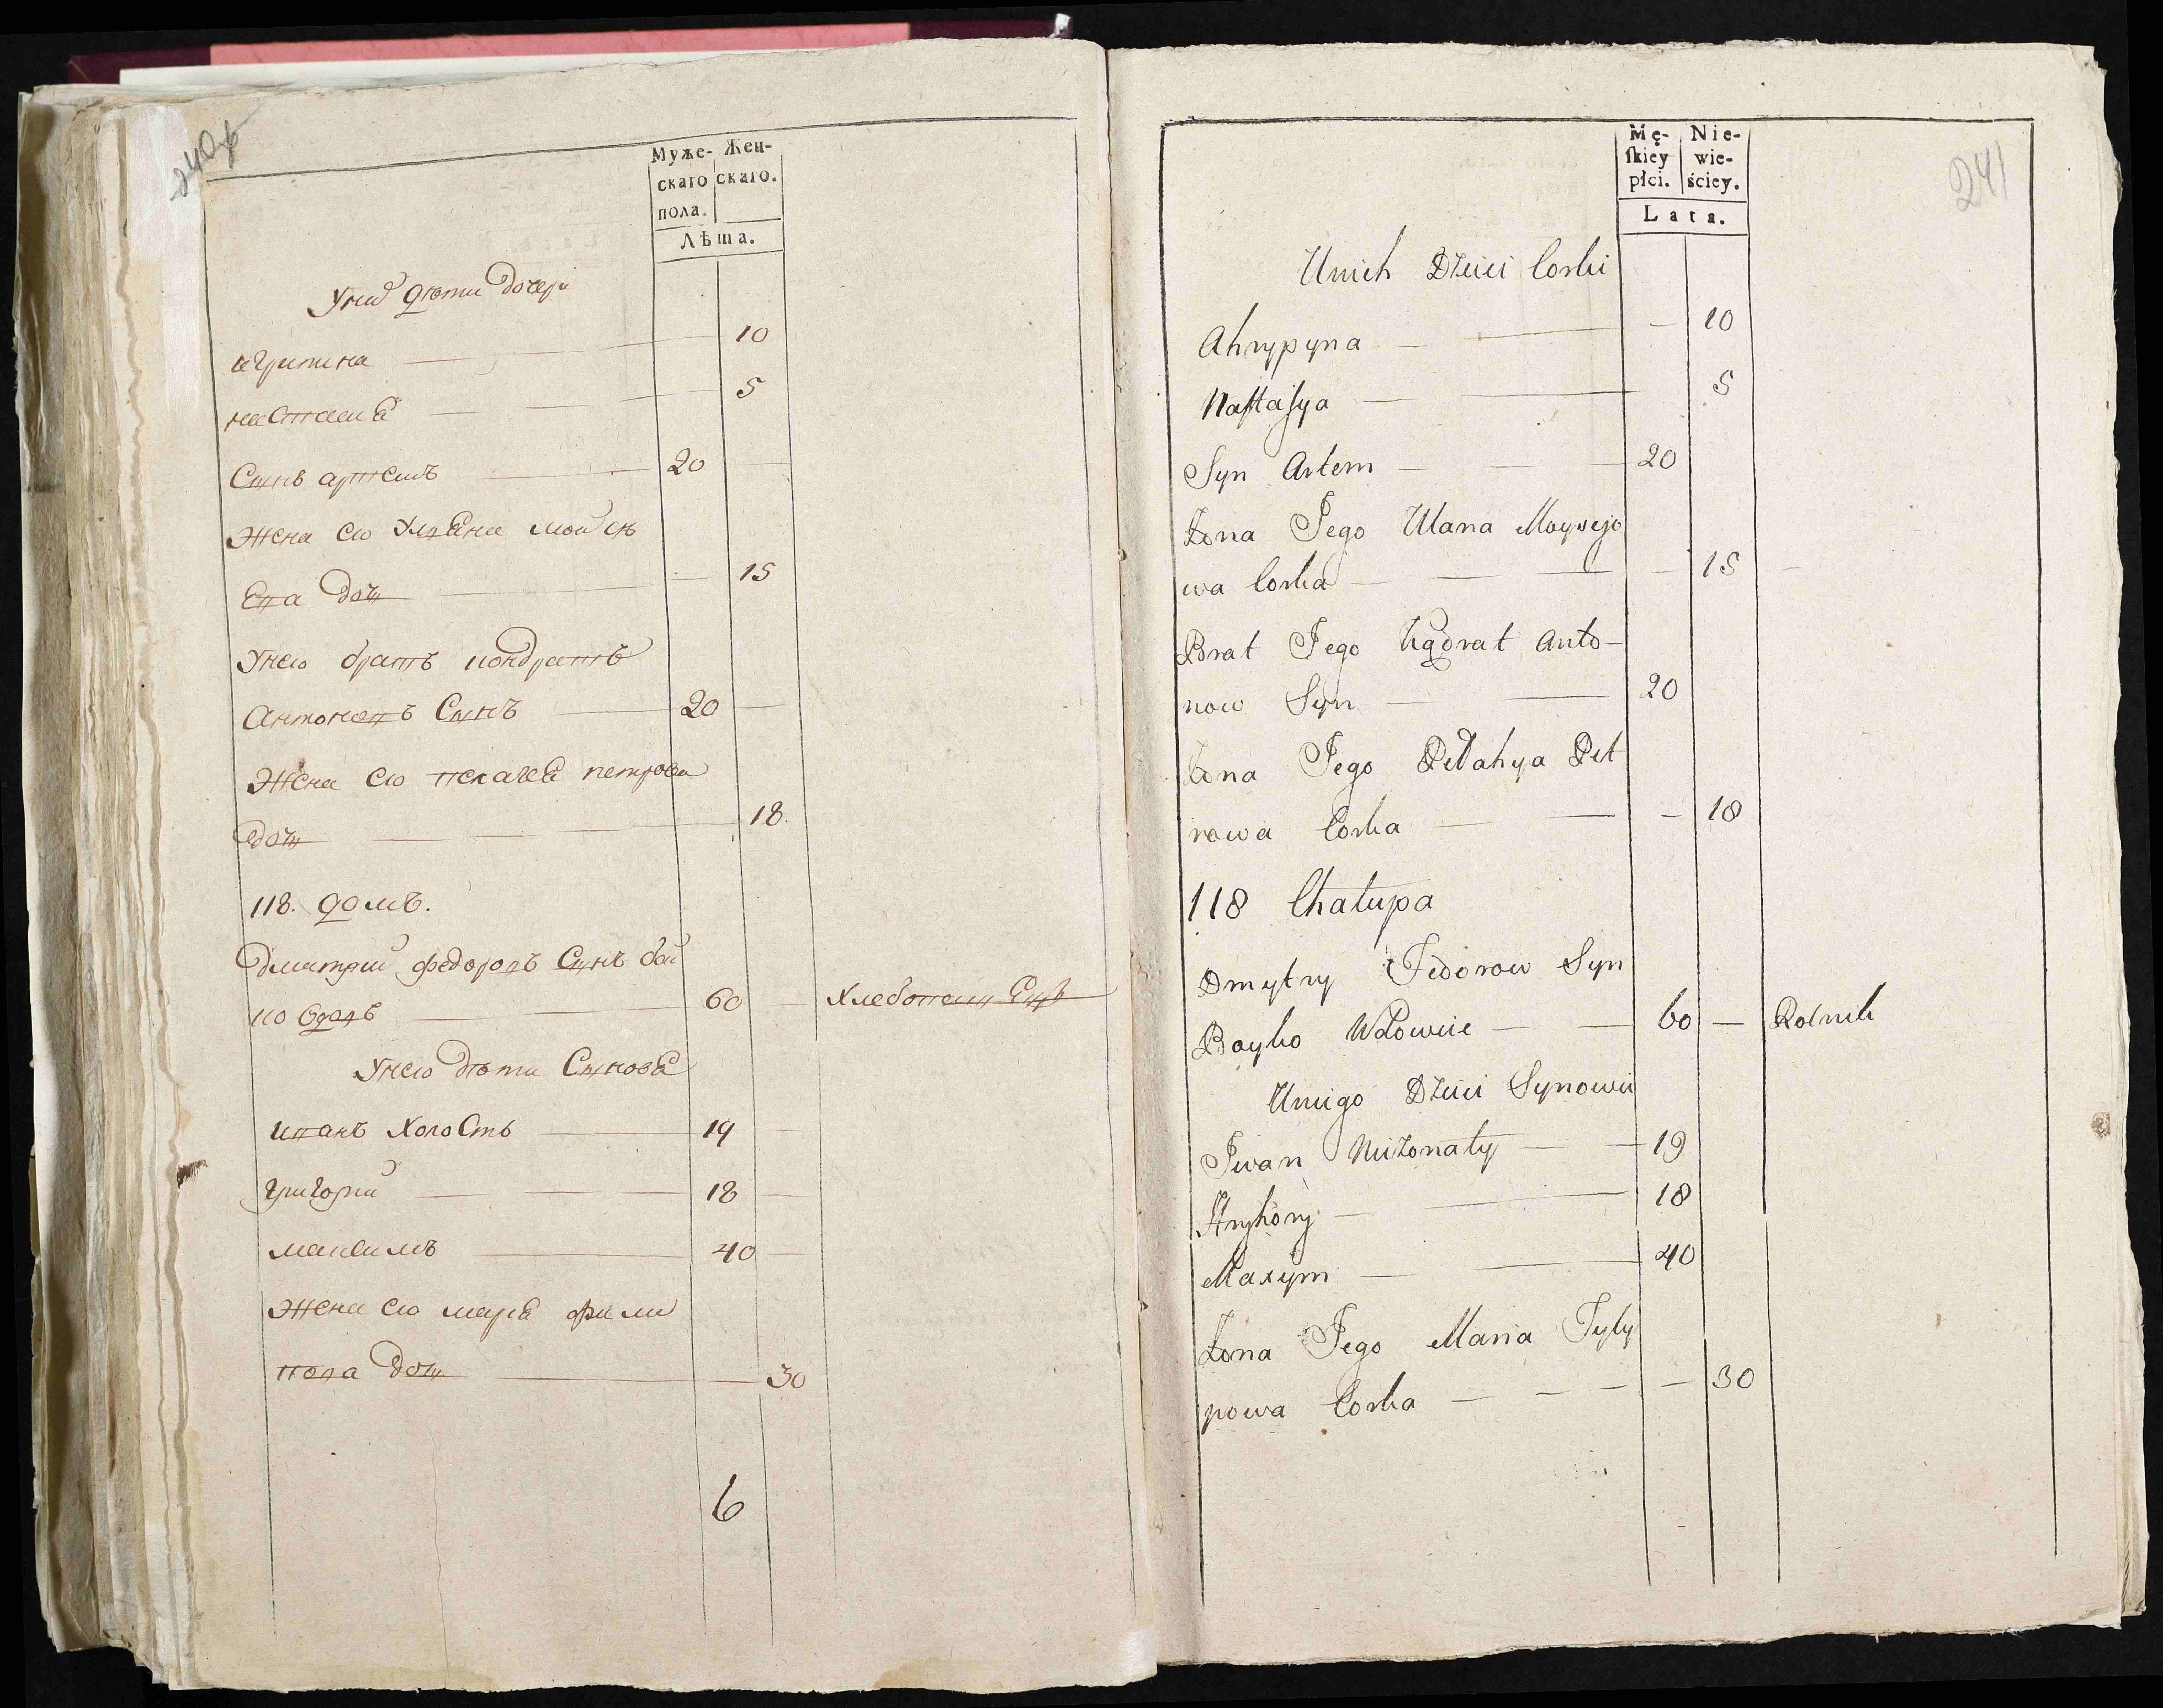 240об
Муже- Жен-
скаго скаго.
пола.
Лѣта.
Уних дѣти дочери
агрипина — 10
настасиа — 5
Сынъ артемъ — 20 —
Жена ево Улиана мойсѣ
ева дочь — 15
Унево братъ кондратъ
Антоновъ Сынъ — 20 —
Жена ево пелагеа петрова
дочь — 18.
118. домъ.
дмитрий федоровъ Сынъ бой
ко вдовъ — 60 — Хлебопашецъ
Унево дѣти Сыновя
иванъ Холость — 19 —
григорий — 18 —
максимъ — 40 —
Жена ево мариа фили
пова дочь — 30
6
241
Mę- Nie-
ſkiey wie-
płci. ściey.
Lata.
Unich Dzieci Corki
Ahrypyna — — 10
Naſtaſya — 5
Syn Artem — 20
Zona Jego Ulana Moyseje
wa Corka — — 15
Brat Jego Kądrat Anto-
now Syn — 20
Zona Jego Pełahya Pet
rowa Corka — — 18
118 Chałupa
Dmytry Fedorow Syn
Boyko Wdowiec — 60 — Rolnik
Uniego Dzieci Synowie
Jwan Nieżonaty — 19
Hryhory — 18
Maxym — 40
Zona Jego Maria Fyly
powa Corka — — 30